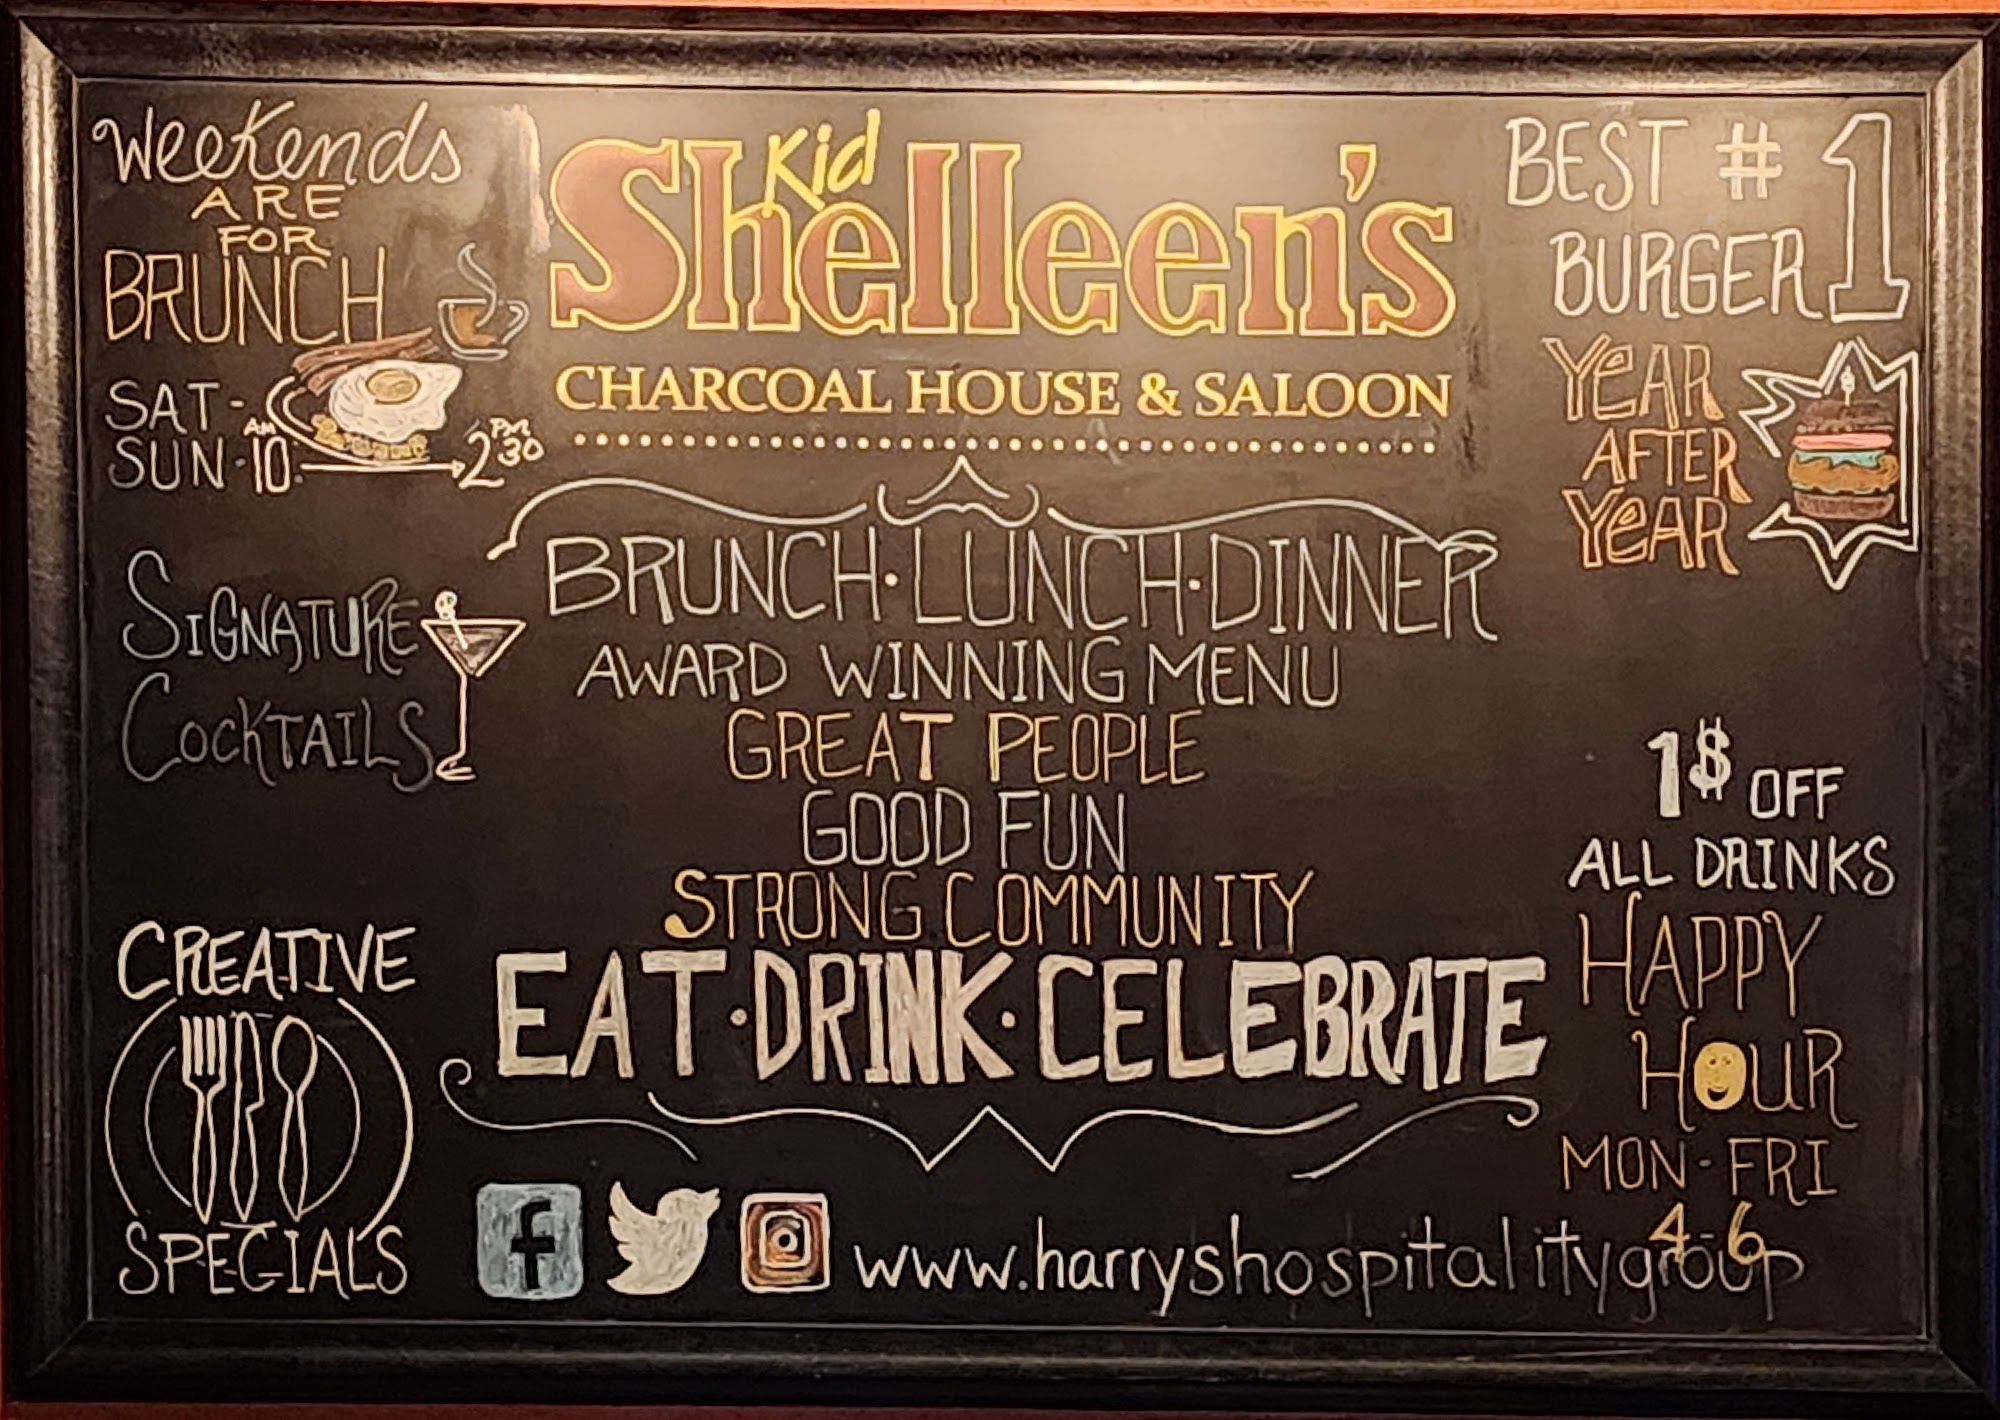 Weekends
ARE
FOR
BRUNCH
SAT-
SUN·10AM → 2:30PM
SIGNATURE
COCKTAILS
CREATIVE
SPECIALS
Kid
Shelleen's
CHARCOAL HOUSE & SALOON
BRUNCH·LUNCH·DINNER
AWARD WINNING MENU
GREAT PEOPLE
GOOD FUN
STRONG COMMUNITY
EAT·DRINK·CELEBRATE
f
www.harryshospitalitygroup
BEST # 1
BURGER
YeAR
AFTER
YeAR
1$ OFF
ALL DRINKS
HAPPY
HOUR
MON-FRI
4-6